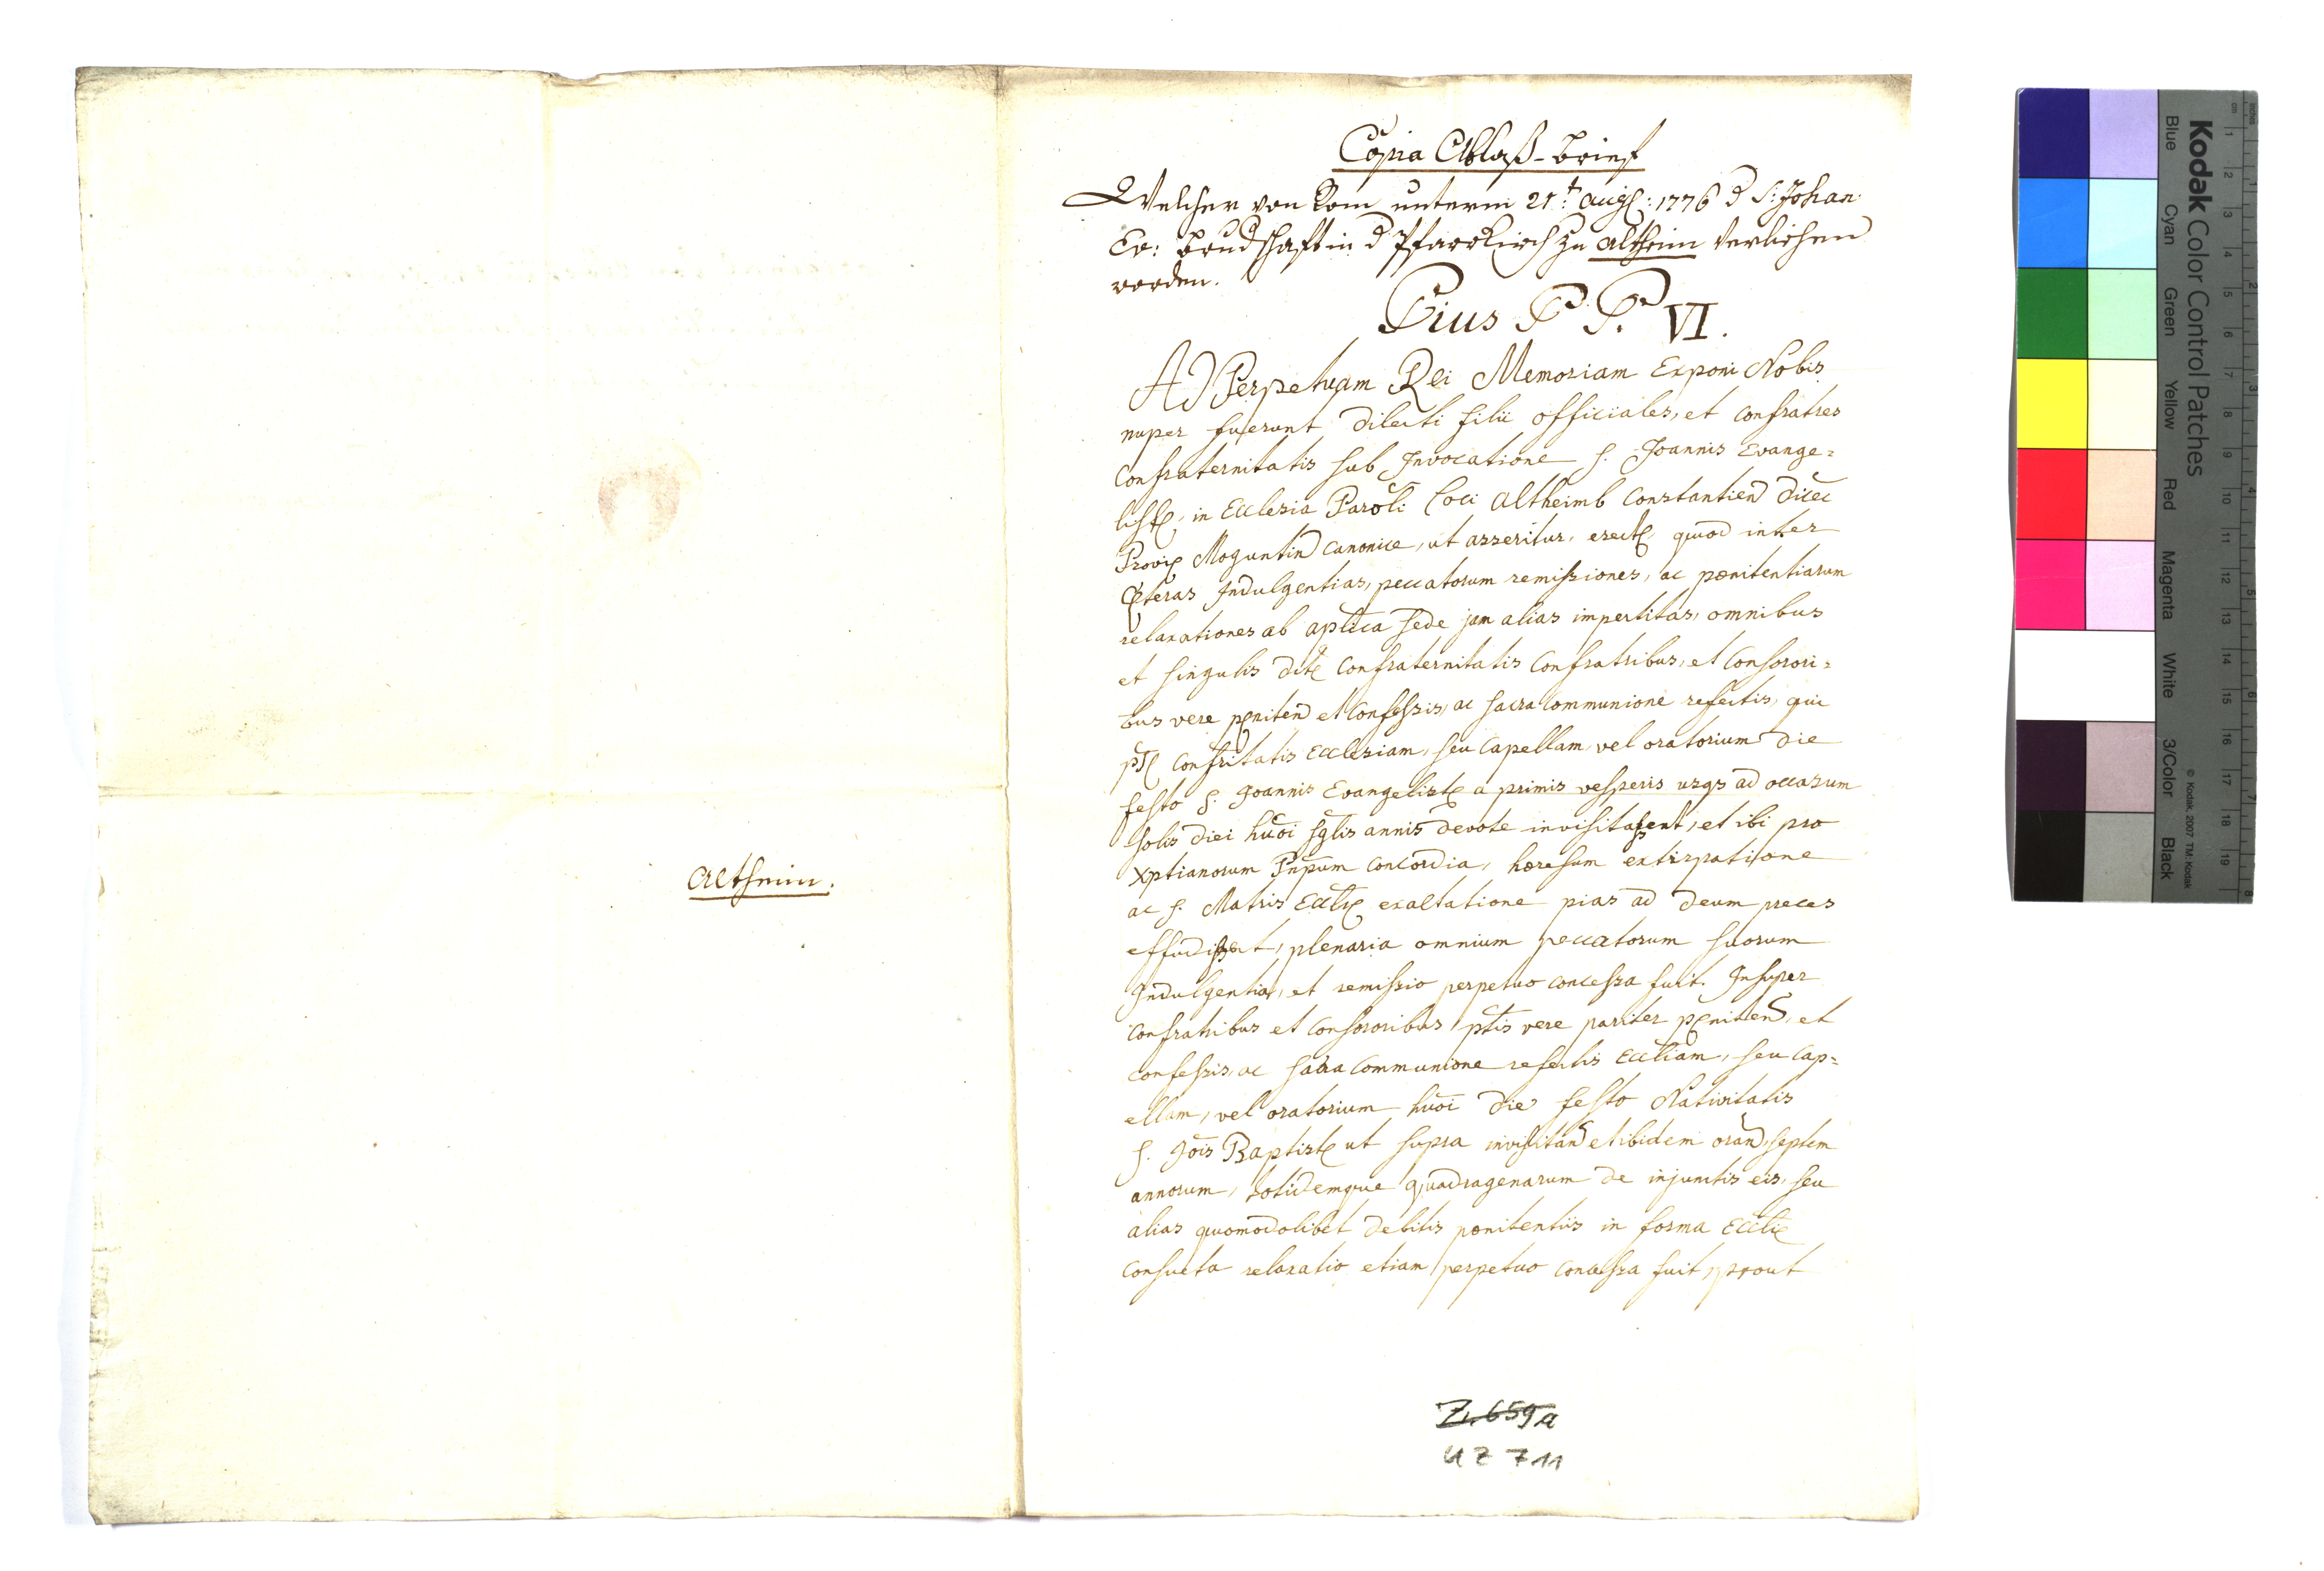 Altheim.
Copia Ablaß-Brief
Welcher von Rom unterm 21t: Augs: 1776 d S: Johan:
Ev: Brudschafft in d Pfarrkirch zu Altheim Verliehen
worden.
Pius P. P. VI.
AD Perpetuam Rei Memoriam Exponi Nobis
nuper fuerunt dilecti filii officiales, et confratres
confraternitatis sub Invocatione S. Joannis Evange=
listę, in Ecclesia Paroli Loci Altheimb Constantien diec
Provię Moguntin canonice, ut asseritur, erectę, quod inter
cęteras Indulgentias, peccatorum remissiones, ac pœnitentiarum
relaxationes ab aplica Sede jam alias impertitas, omnibus
et singulis ditę confraternitatis confratribus, et consorori=
bus vere pęniten et confessis, ac sacra communione refectis, qui
ptę confritatis Ecclesiam, seu capellam, vel oratorium die
festo S. Joannis Evangelistę a primis vesperis usqs ad occasum
solis diei huoi sglis annis devote invisitassent, et ibi pro
xptianorum Pnpum concordia, hæresum extirpatione
ac S. Matris Ecclię exaltatione pias ad Deum preces
effudissent, plenaria omnium peccatorum suorum
Indulgentia, et remissio perpetuo concessa fuit. Insuper
confratribus et consororibus ptis vere pariter pęniten, et
confessis, ac sacra communione refectis Eccliam, seu cap=
ellam, vel oratorium huoi die festo Nativitatis
S. Jois Baptistę ut supra invisitan et ibidem oran, septem
annorum, totidemque quadragenarum de injunctis eis, seu
alias quomodolibet debitis pœnitentiis in forma Ecclię
consueta relaxatio etiam perpetuo concessa fuit, prout
Z. 659a
UZ 711
Kodak Color Control Patches
Blue Cyan Green Yellow Red Magenta White 3/Color Black
© Kodak, 2007 TM: Kodak
inches 1 2 3 4 5 6 7 8
cm 1 2 3 4 5 6 7 8 9 10 11 12 13 14 15 16 17 18 19